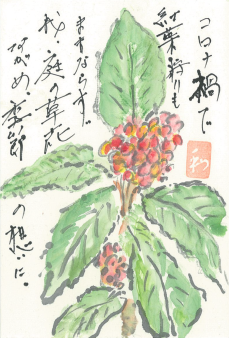 コロナ禍で
紅葉狩りも
まヽならず
我が庭の草花
ながめ、季節
の想いに。